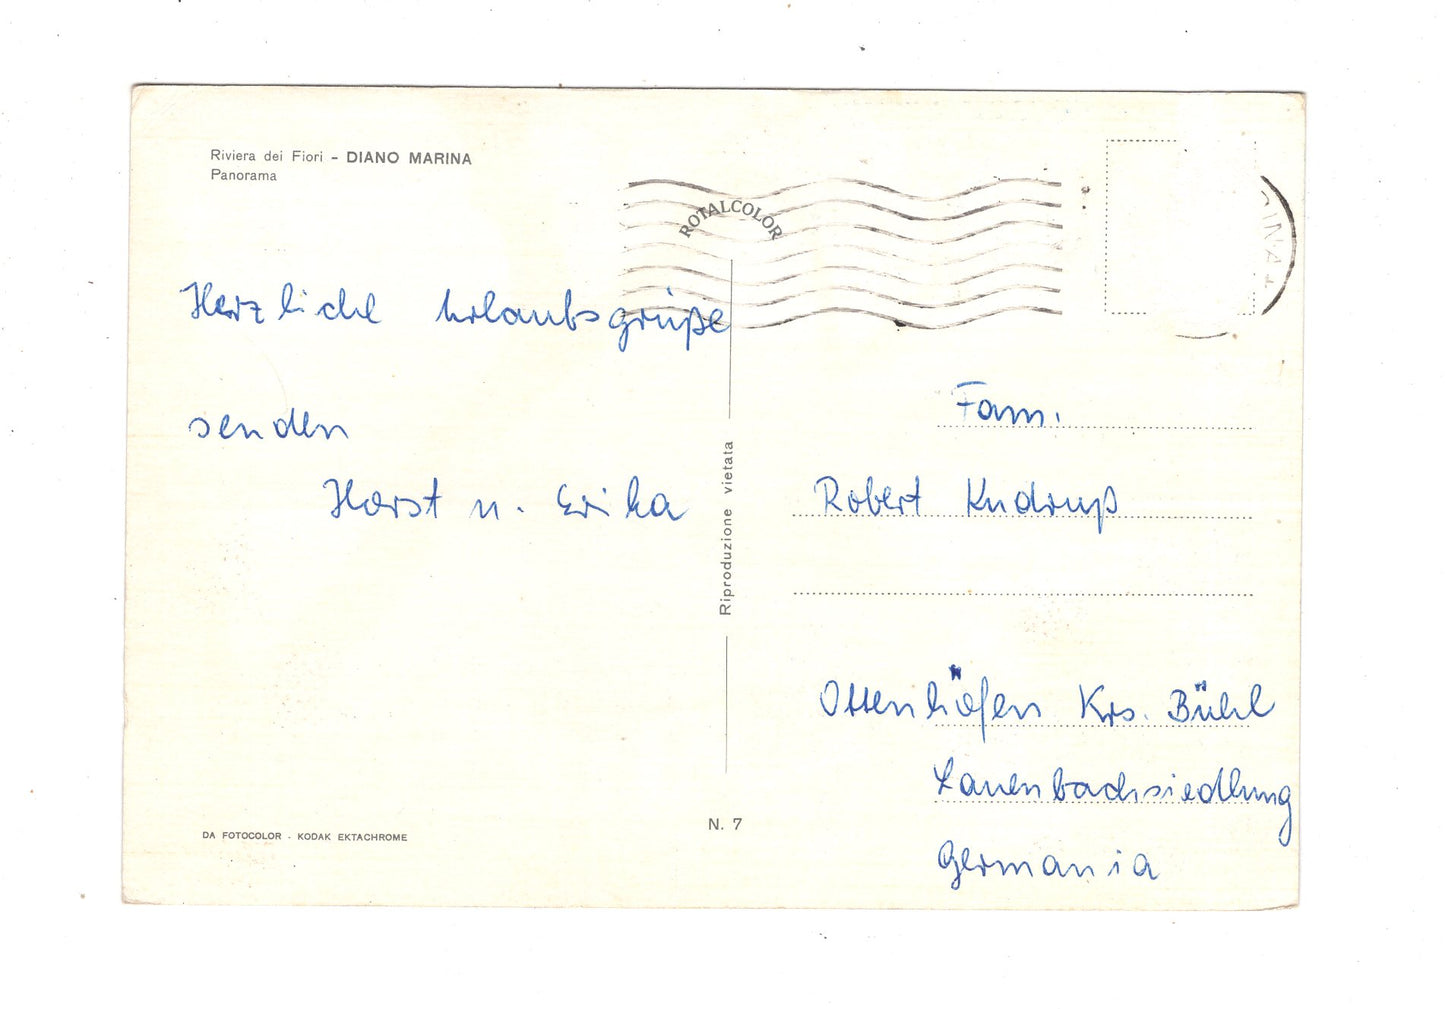 Riviera dei Fiori - DIANO MARINA
Panorama
ROTALCOLOR
Herzliche Urlaubsgrüße
senden
Horst u. Erika
Riproduzione vietata
Fam.
Robert
Ottenhöfen Krs. Bühl
Lauenbachsiedlung
Germania
N. 7
DA FOTOCOLOR - KODAK EKTACHROME